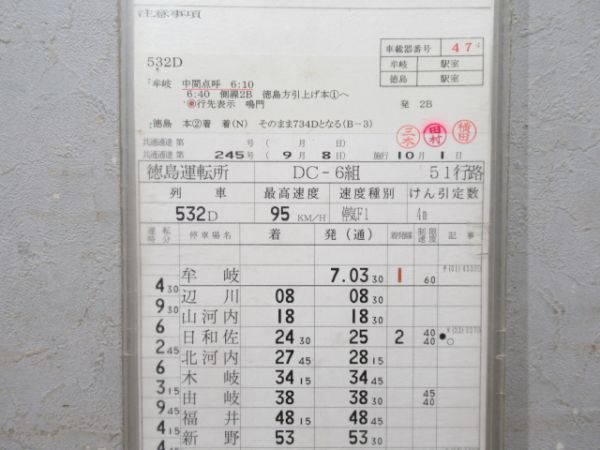 注意事項
車載器番号 47
532D
牟岐 駅室
徳島 駅室
牟岐 中間点呼 6:10
6:40 側線2B 徳島方引上げ本①へ
㊝行先表示 鳴門 発 2B
徳島 本②着 着(N) そのまま734Dとなる(B-3)
三木 田村 横田
共通通達 第 号 ( 月 日)
共通通達 第 245号 (9月 8日) 施行 10月 1日
徳島運転所 DC-6組 51行路
列車 最高速度 速度種別 けん引定数
532D 95 KM/H 停気F1 4m
運転時分 停車場名 着 発(通) 着発線 制限速度 記事
牟岐 7.03 30 1 60
4 30
辺川 08 08 30
9 30
山河内 18 18 30
6
日和佐 24 30 25 2 40 40
2 45
北河内 27 45 28 15
6
木岐 34 15 34 45
3 15
由岐 38 38 30 45 40
9 45
福井 48 15 48 45
4 15
新野 53 53 30